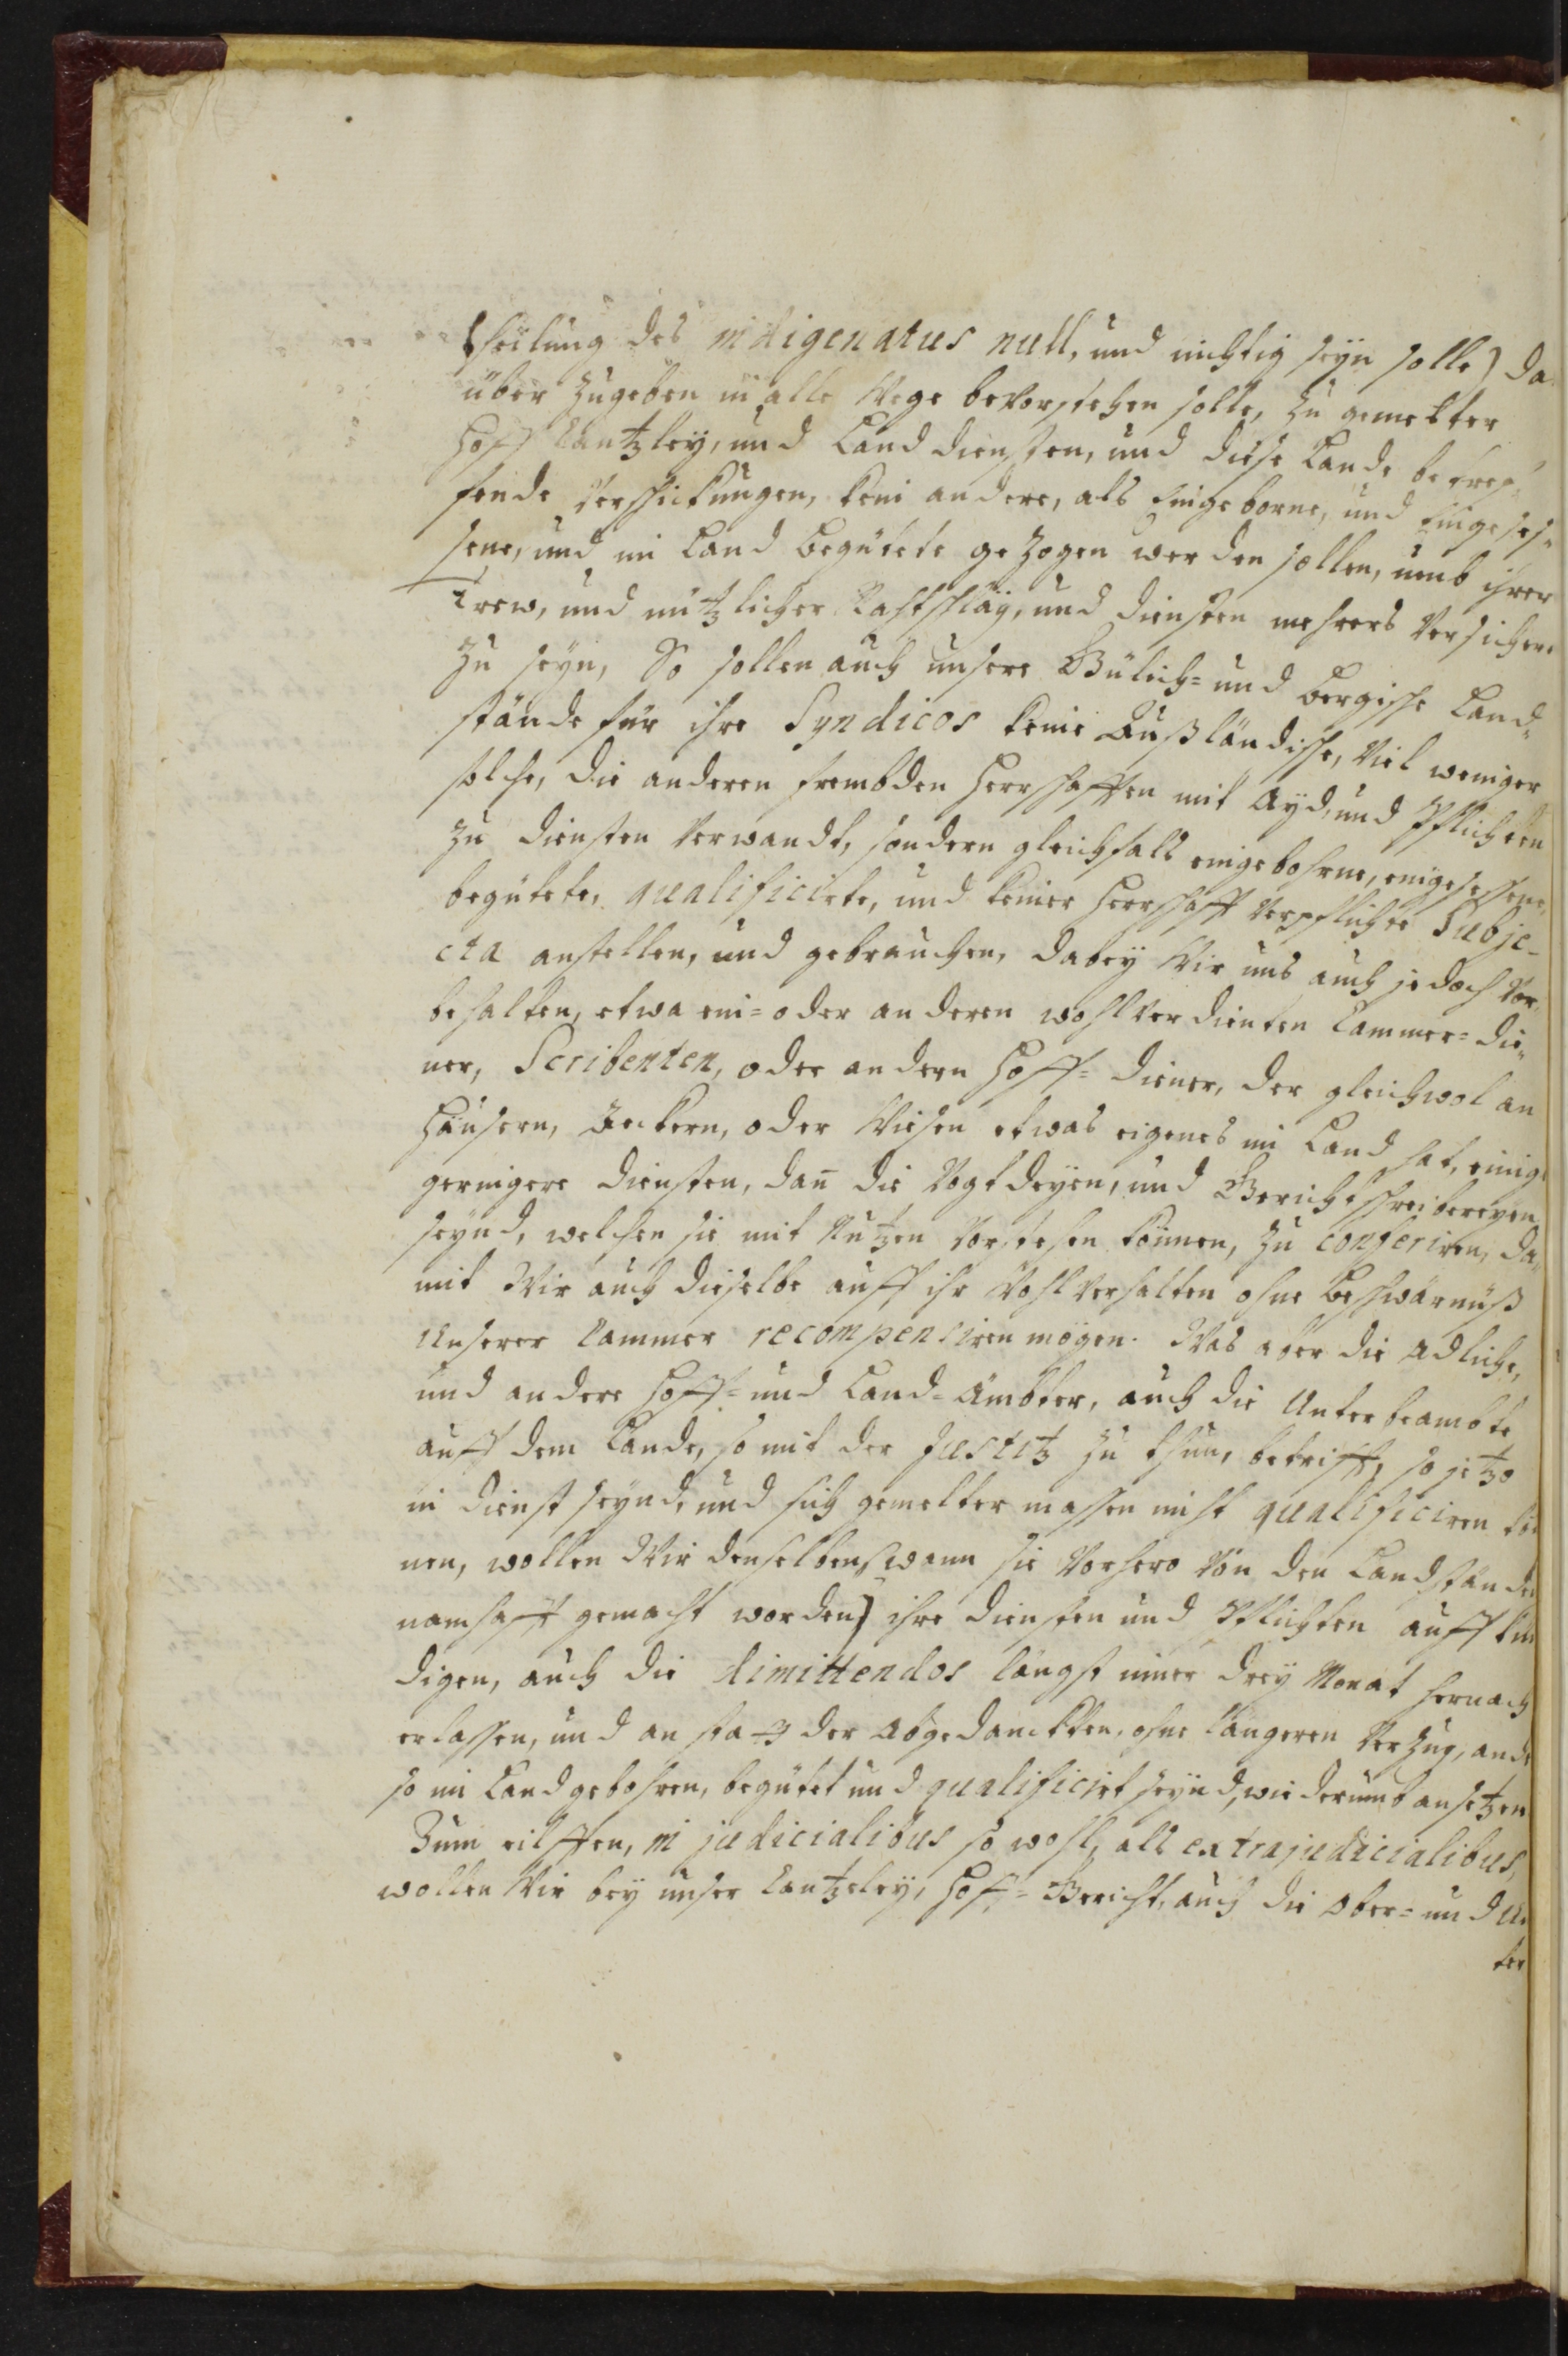 theilung des indigenatus null, und nichtig seyn solle) da
über zugeben in alle Wege bevorstehen solle, zu gemelter
Hoff Cantzley, und Land diensten, und diese Lande betref„
fende Verschickungen, kein andere, als Eingeborne, und Eingeses„
sene, und im Land begütete gezogen werden sollen, umb ihrer
Trew, und nützlicher Rahtschläg, und diensten mehrers Versichert
zu seyn, So sollen auch unsere Gülich= und Bergische Land„
stände für ihre Syndicos keine Außländische, Viel weniger
solche, die anderen frembden Herrschafften mit Ayd, und Pflichten
zu diensten Verwandt, sondern gleichfals eingebohrne, eingesessene,
begütete, qualificirte, und keiner Herrschafft Verpflichte Subje-
cta anstellen, und gebrauchen, dabey Wir uns auch jedoch Vor„
behalten, etwa ein= oder anderen wohlverdienten Cammer= die„
ner, Scribenten, oder andern Hoff= diener, der gleichwol an
Häusern, Äeckern, oder Wiesen etwas eigenes im Land hat, einige
geringere diensten, dañ die Vogtdeyen, und Gerichtschreibereyen
seynd, welchen sie mit Nutzen Vorstehen können, zu conferiren, da„
mit Wir auch dieselbe auff ihr Wohlverhalten ohne Beschwärnüß
Unserer Cammer recompensiren mögen. Was aber die Adliche,
und andere Hoff= und Land= Ämbter, auch die Unterbeambte
auff dem Lande, so mit der Justitz zu thun, betrifft, so jetzo
in dienst seynd, und sich gemelter massen nicht qualificiren kön
nen, wollen Wir denselben (wann sie Vorhero Von den Landständen
namhafft gemacht worden) ihre diensten und Pflichten auffkün
digen, auch die dimittendos längst inner drey Monat hernach
erlassen, und an statt der Abgedanckten, ohne längeren Verzug, ande
so im Land gebohren, begütet und qualificirt seynd, wiederumb ansetzen
Zum eilfften, in judicialibus so wohl, als extrajudicialibus,
wollen Wir bey unser Cantzeley, Hoff= Gericht, auch die Ober= und Un
ter